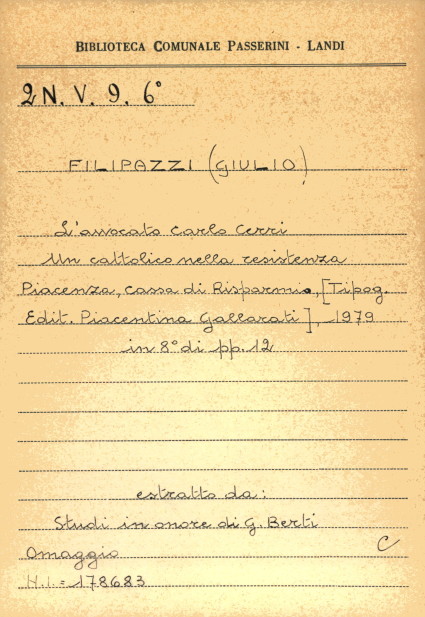 BIBLIOTECA COMUNALE PASSERINI - LANDI
2N. V. 9. 6°
FILIPAZZI (GIULIO)
L'avvocato Carlo Cerri
Un cattolico nella resistenza
Piacenza, Cassa di Risparmio, [Tipog.
Edit. Piacentina Gallarati], 1979
in 8° di pp. 12
estratto da:
Studi in onore di G. Berti
Omaggio
C
N.i.= 178683